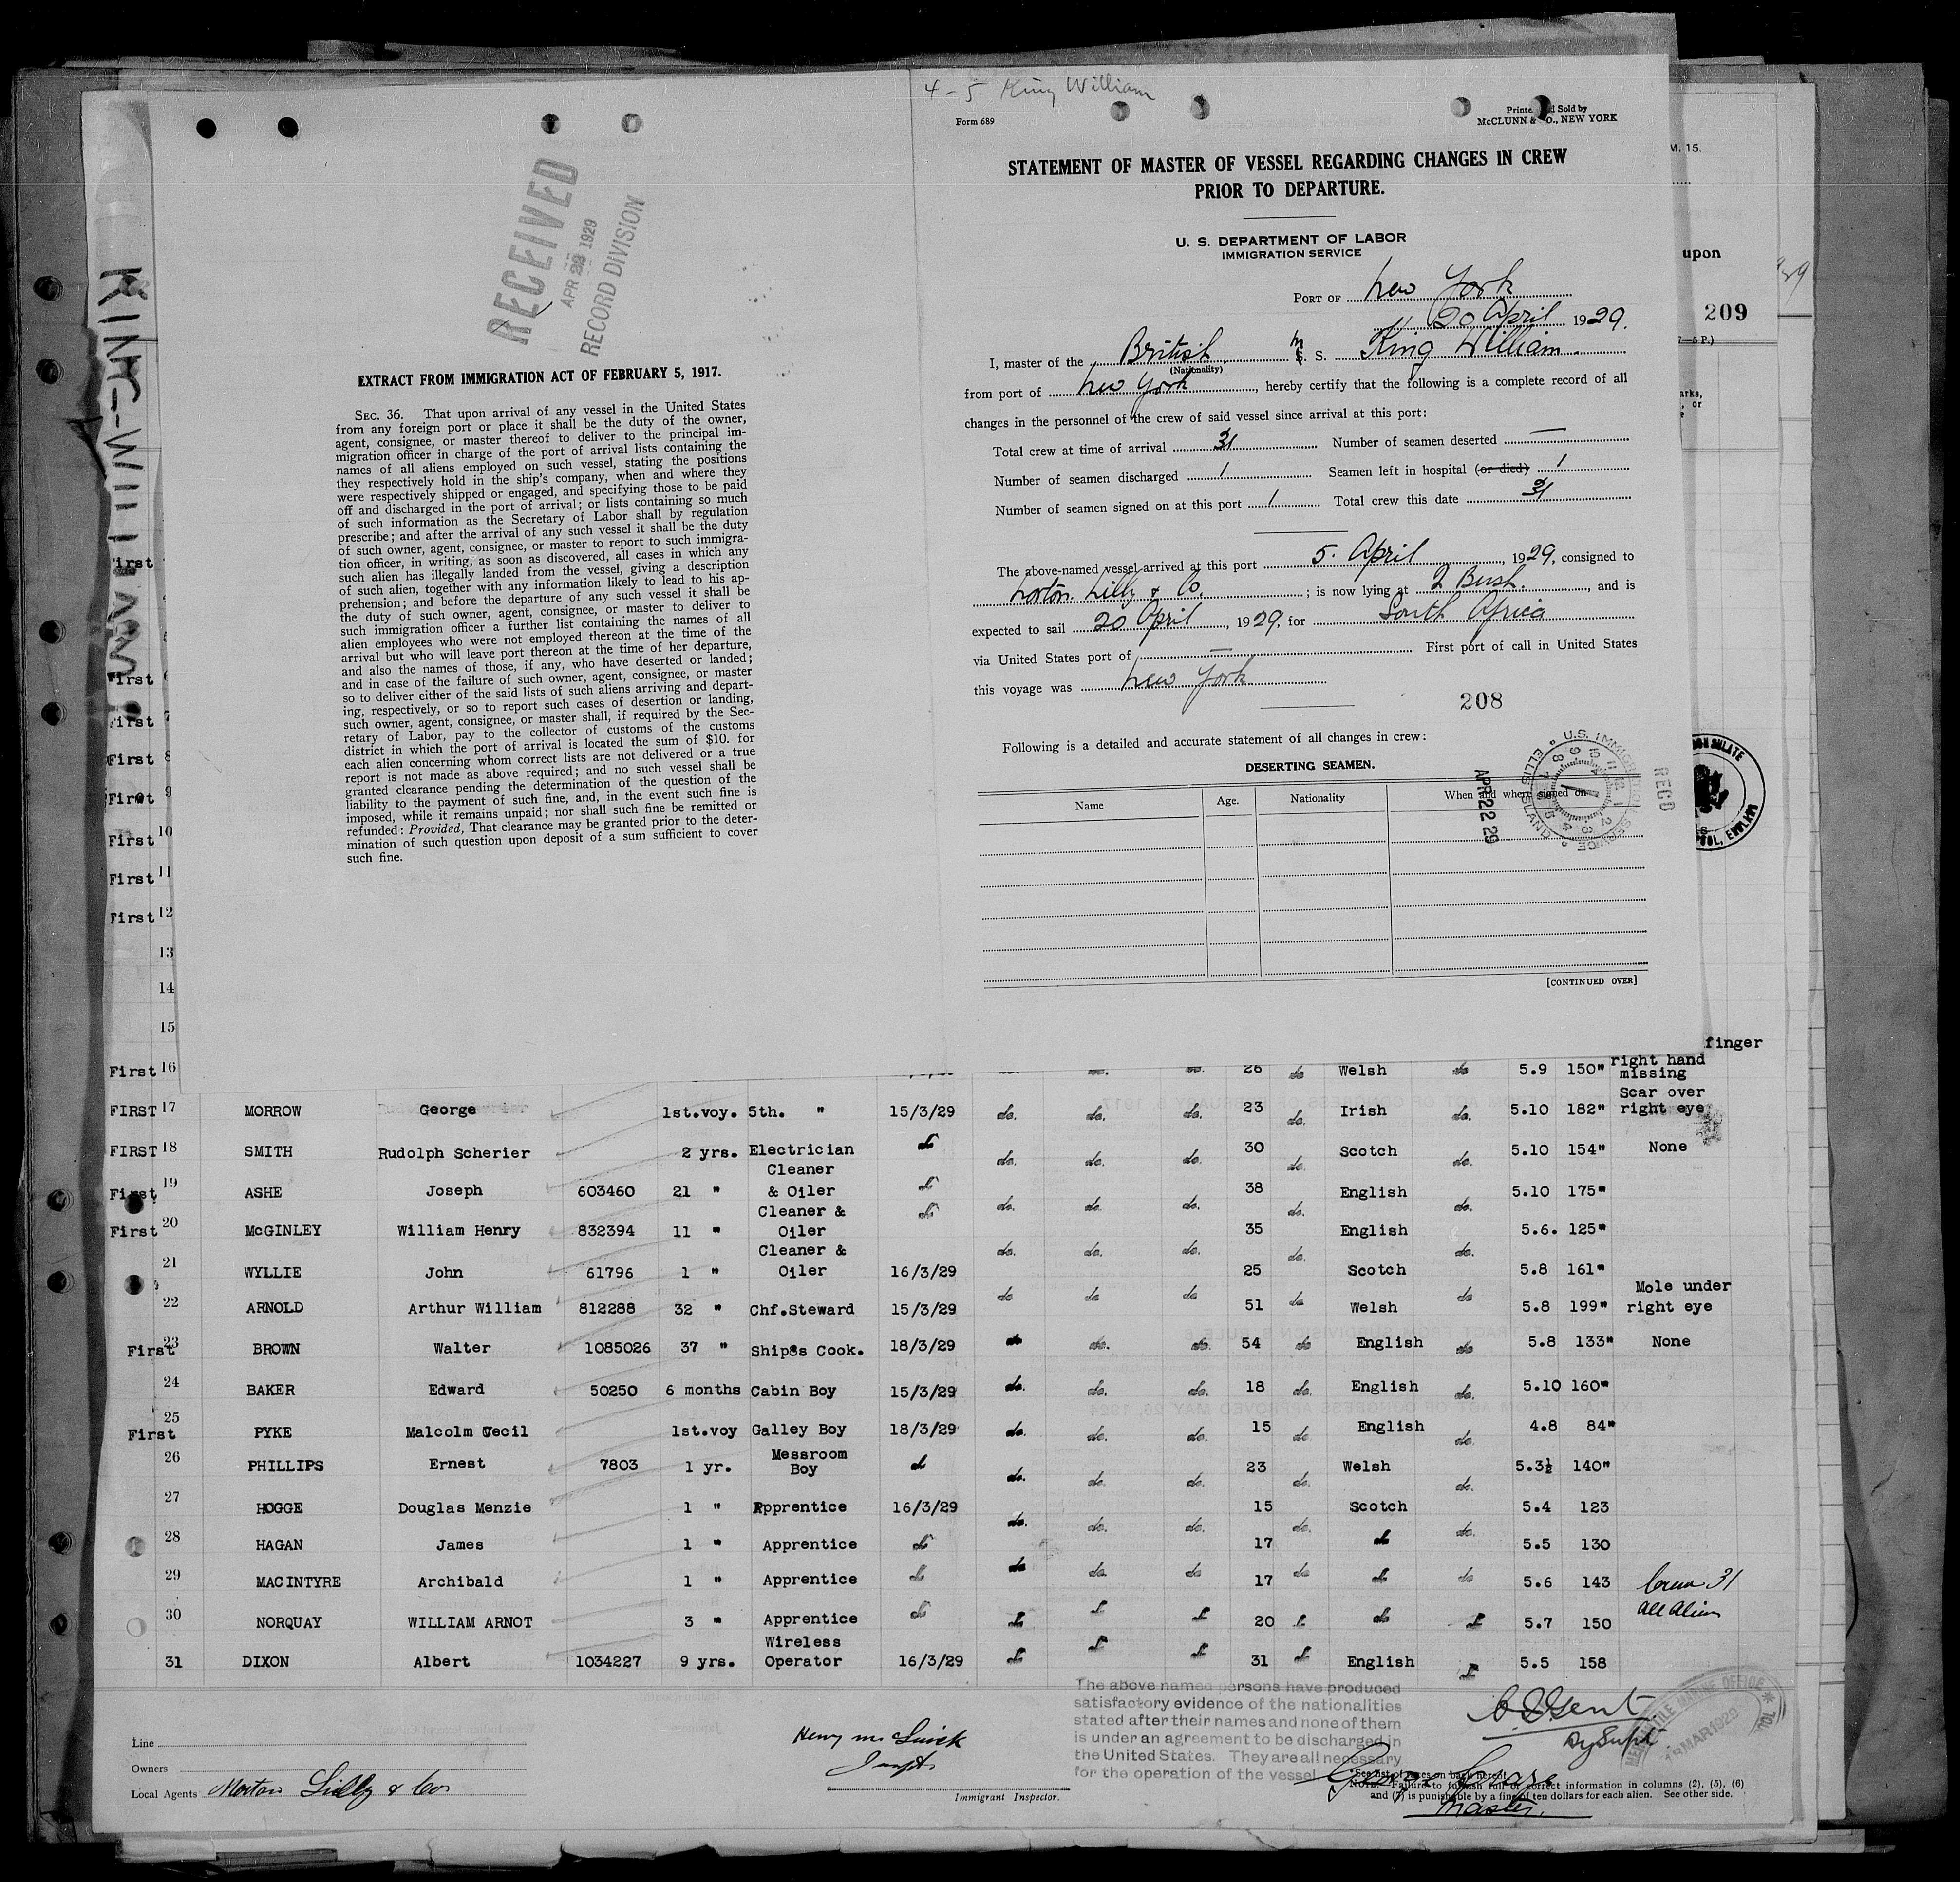 4-5 King William
Form 689
McCLUNN & O., NEW YORK
STATEMENT OF MASTER OF VESSEL REGARDING CHANGES IN CREW
PRIOR TO DEPARTURE.
U. S. DEPARTMENT OF LABOR
IMMIGRATION SERVICE
PORT OF New York
20 April 1929.
I, master of the British M S. King William.
(Nationality)
from port of New York, hereby certify that the following is a complete record of all
changes in the personnel of the crew of said vessel since arrival at this port:
Total crew at time of arrival 31 Number of seamen deserted —
Number of seamen discharged 1 Seamen left in hospital (or died) 1
Number of seamen signed on at this port 1 Total crew this date 31
The above-named vessel arrived at this port 5. April, 1929, consigned to
Norton Lilly & Co. ; is now lying at 2 Bush., and is
expected to sail 20 April, 1929, for South Africa
via United States port of — First port of call in United States
this voyage was New York
208
Following is a detailed and accurate statement of all changes in crew:
DESERTING SEAMEN.
Name Age. Nationality When and where signed on
[CONTINUED OVER]
APR 22 29
U.S. IMMIGRATION SERVICE
ELLIS ISLAND
RECD
RECEIVED
APR 22 1929
RECORD DIVISION
EXTRACT FROM IMMIGRATION ACT OF FEBRUARY 5, 1917.
SEC. 36. That upon arrival of any vessel in the United States
from any foreign port or place it shall be the duty of the owner,
agent, consignee, or master thereof to deliver to the principal im-
migration officer in charge of the port of arrival lists containing the
names of all aliens employed on such vessel, stating the positions
they respectively hold in the ship's company, when and where they
were respectively shipped or engaged, and specifying those to be paid
off and discharged in the port of arrival; or lists containing so much
of such information as the Secretary of Labor shall by regulation
prescribe; and after the arrival of any such vessel it shall be the duty
of such owner, agent, consignee, or master to report to such immigra-
tion officer, in writing, as soon as discovered, all cases in which any
such alien has illegally landed from the vessel, giving a description
of such alien, together with any information likely to lead to his ap-
prehension; and before the departure of any such vessel it shall be
the duty of such owner, agent, consignee, or master to deliver to
such immigration officer a further list containing the names of all
alien employees who were not employed thereon at the time of the
arrival but who will leave port thereon at the time of her departure,
and also the names of those, if any, who have deserted or landed;
and in case of the failure of such owner, agent, consignee, or master
so to deliver either of the said lists of such aliens arriving and depart-
ing, respectively, or so to report such cases of desertion or landing,
such owner, agent, consignee, or master shall, if required by the Sec-
retary of Labor, pay to the collector of customs of the customs
district in which the port of arrival is located the sum of $10. for
each alien concerning whom correct lists are not delivered or a true
report is not made as above required; and no such vessel shall be
granted clearance pending the determination of the question of the
liability to the payment of such fine, and, in the event such fine is
imposed, while it remains unpaid; nor shall such fine be remitted or
refunded: Provided, That clearance may be granted prior to the deter-
mination of such question upon deposit of a sum sufficient to cover
such fine.
M. 15.
upon
209
KING-WILLIAM
First
First
First 7
First 8
First 9
First 10
First 11
First 12
13
14
15
finger
First 16 26 do Welsh do 5.9 150" right hand missing
FIRST 17 MORROW George 1st.voy. 5th. " 15/3/29 do. do. do. 23 do. Irish do. 5.10 182" Scar over right eye
FIRST 18 SMITH Rudolph Scherier 2 yrs. Electrician do do. do. do. 30 do. Scotch do. 5.10 154" None
First 19 ASHE Joseph 603460 21 " Cleaner & Oiler do do. do. do. 38 do. English do. 5.10 175"
First 20 McGINLEY William Henry 832394 11 " Cleaner & Oiler do do. do. do. 35 do. English do. 5.6. 125"
21 WYLLIE John 61796 1 " Cleaner & Oiler 16/3/29 25 Scotch 5.8 161"
22 ARNOLD Arthur William 812288 32 " Chf.Steward 15/3/29 do do do 51 do Welsh do 5.8 199" Mole under right eye
First 23 BROWN Walter 1085026 37 " Ships Cook. 18/3/29 do do. do. 54 do English do 5.8 133" None
24 BAKER Edward 50250 6 months Cabin Boy 15/3/29 do. do. do. 18 do. English do. 5.10 160"
First 25 PYKE Malcolm Cecil 1st.voy Galley Boy 18/3/29 do. do. do. 15 do English do. 4.8 84"
26 PHILLIPS Ernest 7803 1 yr. Messroom Boy do do. do. do. 23 do. Welsh do. 5.3½ 140"
27 HOGGE Douglas Menzie 1 " Apprentice 16/3/29 do. do. do. 15 do. Scotch do. 5.4 123
28 HAGAN James 1 " Apprentice do 17 do 5.5 130
29 MACINTYRE Archibald 1 " Apprentice do do do do 17 do do do 5.6 143
30 NORQUAY WILLIAM ARNOT 3 " Apprentice do do do do 20 do do do 5.7 150
31 DIXON Albert 1034227 9 yrs. Wireless Operator 16/3/29 do do do 31 do English do 5.5 158
Crew 31
all Alien
The above named persons have produced
satisfactory evidence of the nationalities
stated after their names and none of them
is under an agreement to be discharged in
the United States. They are all necessary
for the operation of the vessel
MERCANTILE MARINE OFFICE
18 MAR 1929
Dy Supt.
Master.
Line
Owners
Local Agents Norton Lilly & Co
Immigrant Inspector.
*See list of races on back hereof.
NOTE.—Failure to furnish full or correct information in columns (2), (5), (6)
and (7) is punishable by a fine of ten dollars for each alien. See other side.